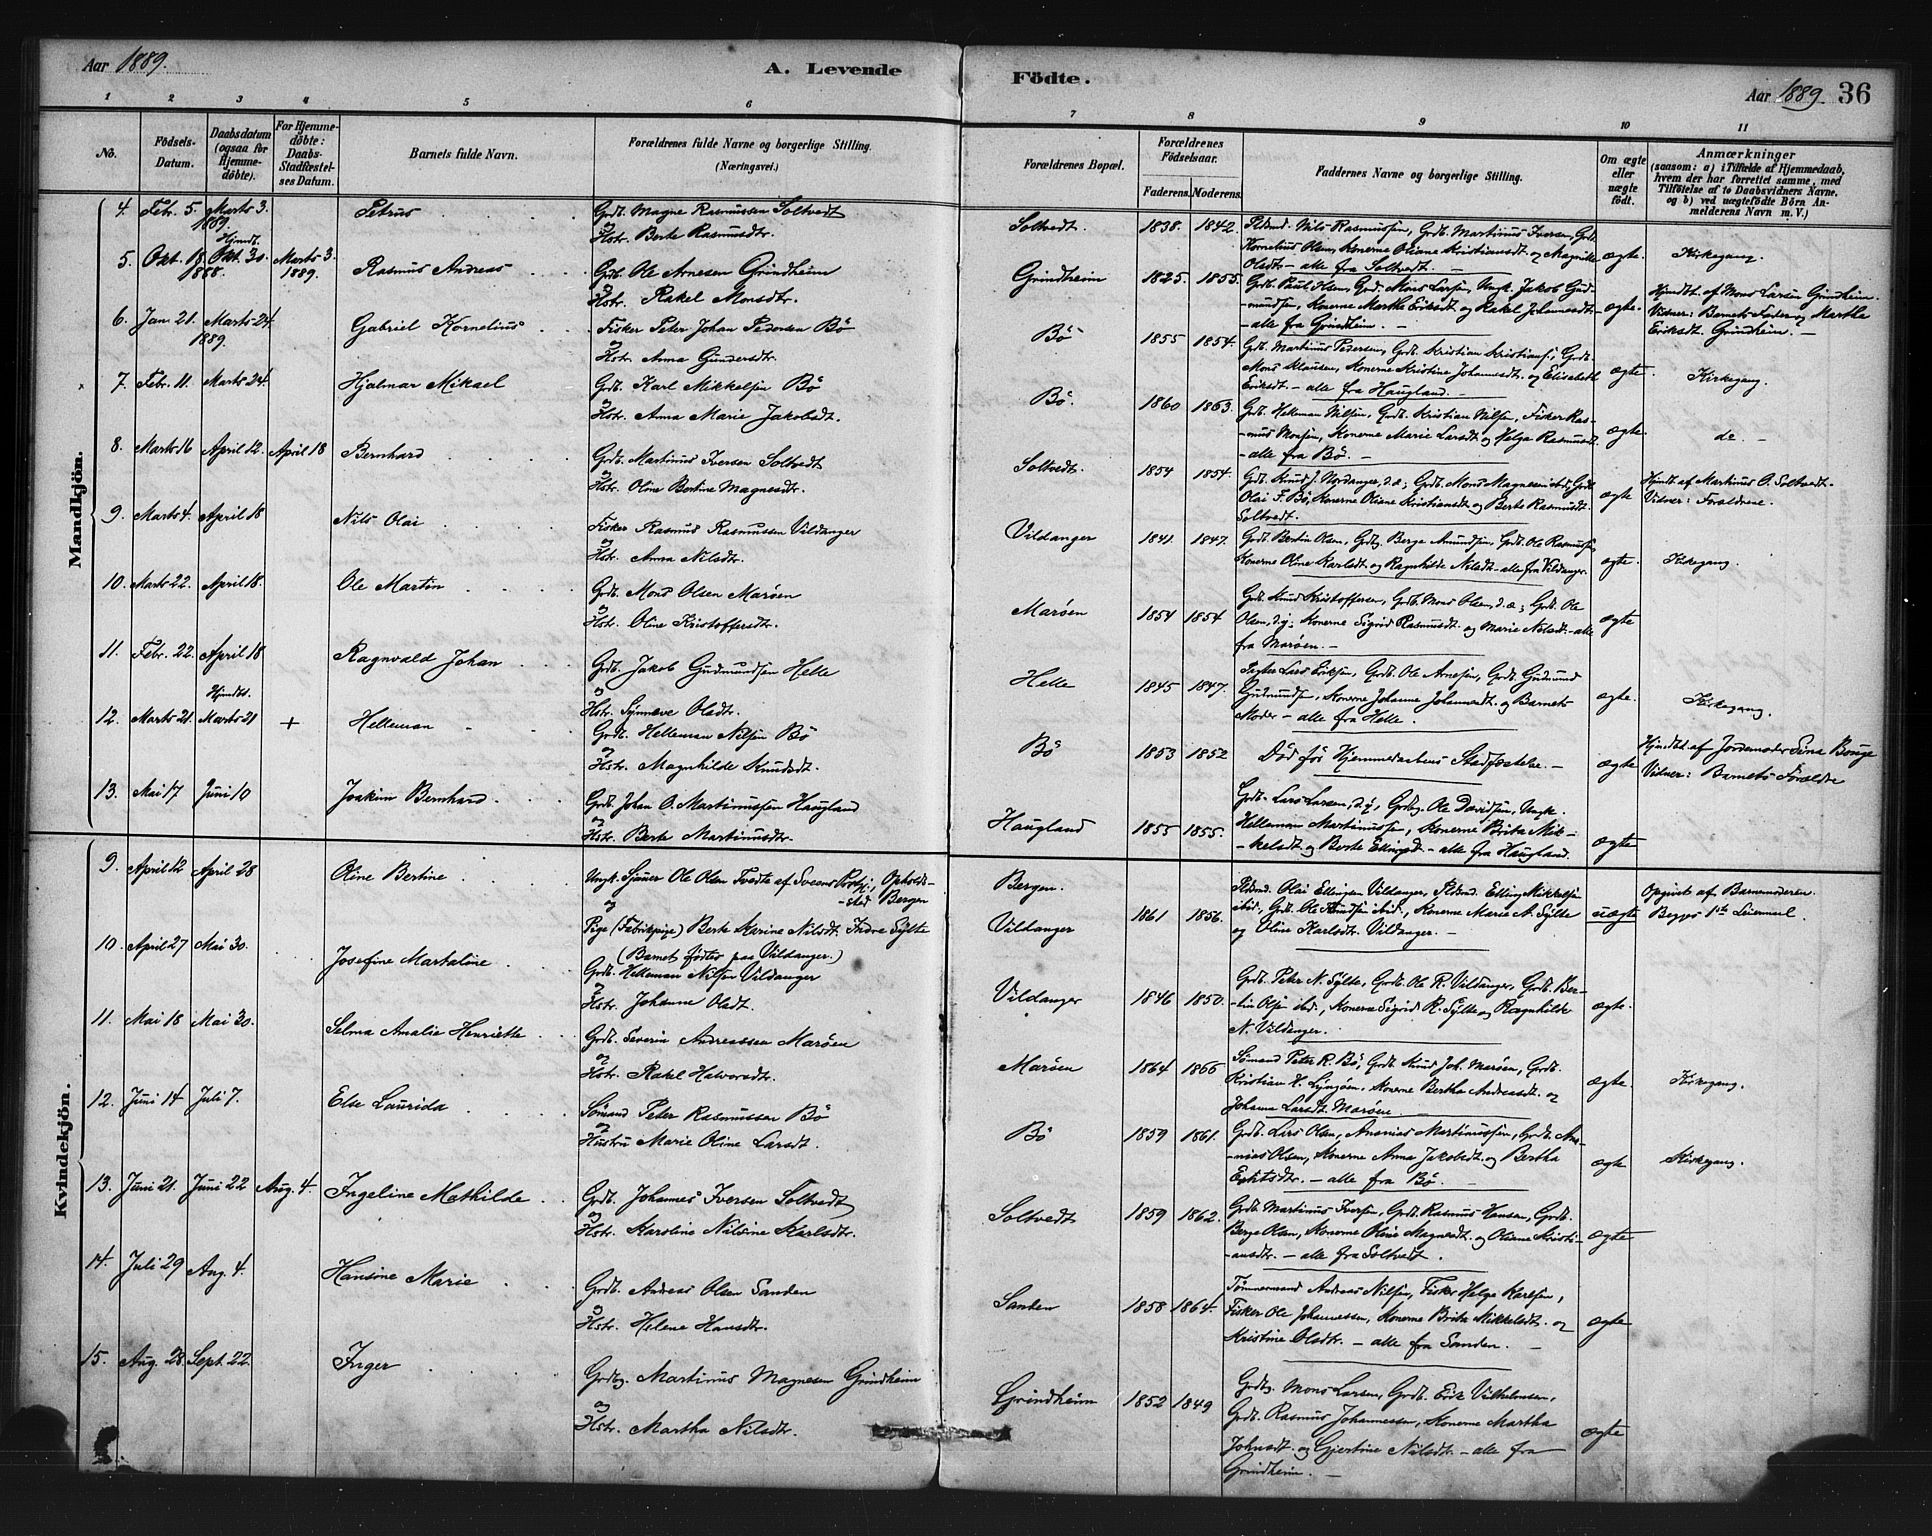 Aar 1889.
A. Levende Födte.
Aar 1889 36
1 2 3 4 5 6 7 8 9 10 11
No.
Födsels-Datum.
Daabsdatum (ogsaa for Hjemmedöbte).
For Hjemmedöbte: Daabs-Stadfæstelses Datum.
Barnets fulde Navn.
Forældrenes fulde Navne og borgerlige Stilling. (Næringsvei.)
Forældrenes Bopæl.
Forældrenes Födselsaar.
Faderens. Moderens.
Faddernes Navne og borgerlige Stilling.
Om ægte eller uægte födt.
Anmærkninger
(saasom: a) i Tilfælde af Hjemmedaab, hvem der har forrettet samme, med Tilföielse af to Daabsvidners Navne, og b) ved uægtefödte Börn Anmelderens Navn m. V.)
Mandkjön.
4. Febr. 5. 1889. Marts 3. Petrus
Grdb. Magne Rasmussen Soltvedt
og
Hstr. Berte Rasmusdtr.
Soltvedt. 1838. 1842.
Pldsmd. Nils Rasmussen, Grdb. Martinus Iversen, Grdb.
Kornelius Olsen, Konerne Oliane Kristiansdt. og Magnilde
Olsdtr. – alle fra Soltvedt. –
ægte. Kirkegang.
5. Okt. 18. 1888. Hjmdt. Okt. 30. Marts 3. 1889. Rasmus Andreas
Grdb. Ole Arnesen Grindheim
og
Hstr. Rakel Monsdtr.
Grindheim 1825. 1855.
Grdb. Paul Olsen, Grdb. Mons Larsen, Ungk. Jakob Gud-
-mundsen, Konerne Martha Eriksdt. og Rakel Johannesdt.
– alle fra Grindheim. –
ægte.
Hjmdbt. af Mons Larsen Grindheim.
Vidner: Barnets Fader og Martha
Eriksdt. Grindheim. –
6. Jan. 21. 1889. Marts 24. Gabriel Kornelius
Fisker Peter Johan Pedersen Bö
og
Hstr. Anna Gundersdtr.
Bö 1855 1854.
Grdb. Martinus Pedersen, Grdb. Kristian Kristians., Grdb.
Mons Klausen, Konerne Kristine Johannesdt. og Elisabeth
Eriksdt. – alle fra Haugland. –
ægte. Kirkegang.
7. Febr. 11. Marts 24. Hjalmar Mikael
Grdb. Karl Mikkelsen Bö
og
Hstr. Anna Marie Jakobsdt.
Bö. 1860 1863.
Grdb. Helleman Nilsen, Grdb. Kristian Nilsen, Fisker Ras-
-mus Monsen, Konerne Marie Larsdt. og Helga Rasmusdt.
– alle fra Bö. –
ægte. do. –
8. Marts 16 April 12. April 18 Bernhard
Grdb. Martinus Iversen Soltvedt
og
Hstr. Oline Bertine Magnesdtr.
Soltvedt. 1854 1854.
Grdb. Knud J. Nordanger, d.æ., Grdb. Mons Magnesen ibid., Grdb.
Olai F. Bö, Konerne Oliane Kristiansdt. og Berte Rasmusdt.
Soltvedt.
ægte
Hjmdt. af Martinus O. Soltvedt.
Vidner: Forældrene.
9. Marts 4. April 18 Nils Olai
Fisker Rasmus Rasmussen Vildanger
og
Hstr. Anna Nilsdtr.
Vildanger 1841. 1847.
Grdb. Bertin Olsen, Grdbg. Berge Amundsen, Grdb. Ole Rasmussen,
Konerne Oline Karlsdt. og Ragnhilde Nilsdt. – alle fra Vildanger.
ægte. Kirkegang.
10. Marts 22. April 18. Ole Martin
Grdb. Mons Olsen Maröen
og
Hstr. Oline Kristoffersdt.
Maröen 1854 1854
Grdb. Knud Kristoffersen, Grdb. Mons Olsen, d.æ., Grdb. Ole
Olsen, d.y., Konerne Sigrid Rasmusdt. og Marie Nilsdt. – alle
fra Maröen. –
ægte
11. Febr. 22. April 18 Ragnvald Johan
Grdb. Jakob Gudmundsen Helle
og
Hstr. Synneve Olsdtr.
Helle 1845 1847.
Lars Eriksen, Grdb. Ole Arnesen, Grdb. Gudmund
Gudmunds., Konerne Johanne Johannesdt. og Barnets
Moder – alle fra Helle.
ægte. Kirkegang.
12. Marts 21. Hjmdbt. Marts 21 + Helleman
Grdb. Helleman Nilsen Bö
og
Hstr. Magnhilde Knudsdt.
Bö 1853 1852
Död för Hjemmedaabens Stadfæstelse. –
ægte
Hjmdbt. af Jordemoder Sina Bouge
Vidner: Barnets Forældre
13. Mai 17 Juni 10 Joakim Bernhard
Grdb. Johan O. Martinussen Haugland
og
Hstr. Berte Martinusdtr.
Haugland 1855 1855.
Grdb. Lars Larsen, d.y., Grdbg. Ole Davidsen, Ungk.
Helleman Martinussen, Konerne Brita Mik-
-kelsdt. og Berte Ellingsdt. – alle fra Haugland.
ægte
Kvindekjön.
9. April 12 April 28 Oline Bertine
Ungk. Sjauer Ole Olsen Tvedte af Sveens Præstgj., Opholds-
og -sted Bergen
Pige (Fabrikpige) Berte Karine Nilsdt. Indre Sylte
(Barnet födtes paa Vildanger.)
Bergen.
Vildanger 1861 1856.
Pldsmd. Olai Ellingsen Vildanger, Pldsmd. Elling Mikkelsen
ibid., Grdb. Ole Knudsen ibid., Konerne Marie A. Sylte
og Oline Karlsdt. Vildanger. –
uægte
Opgivet af Barnemoderen.
Begges 1ste Leiermaal.
10. April 27 Mai 30. Josefine Martaline
Grdb. Helleman Nilsen Vildanger
og
Hstr. Johanne Olsdt.
Vildanger 1846 1850.
Grdb. Peter N. Sylte, Grdb. Ole R. Vildanger, Grdb. Ber-
-tin Olsen ibid., Konerne Sigrid R. Sylte og Ragnhilde
N. Vildanger.
ægte.
11. Mai 18 Mai 30. Selma Amalie Henriette
Grdb. Severin Andreassen Maröen
og
Hstr. Rakel Halvorsdtr.
Maröen 1864 1866
Sömand Peter R. Bö, Grdb. Knud Joh. Maröen, Grdb.
Kristian H. Lyngöen, Konerne Bertha Andreasdt. og
Johanna Larsdt. Maröen.
ægte Kirkegang.
12. Juni 14 Juli 7. Else Laurida
Sömand Peter Rasmussen Bö
og
Hustru Marie Oline Larsdt.
Bö 1859 1861.
Grdb. Lars Olsen, Ananias Martinussen, Grdb. Ana-
-nias Olsen, Konerne Anna Jakobsdt. og Bertha
– alle fra Bö. –
ægte Kirkegang.
13. Juni 21. Juni 22 Aug. 4. Ingeline Mathilde
Grdb. Johannes Iversen Soltvedt
og
Hstr. Karoline Nilsine Karlsdtr.
Soltvedt 1859 1862.
Grdb. Martinus Iversen, Grdb. Rasmus Hansen, Grdb.
Berge Olsen, Konerne Oline Magnesdt. og Oliane Kristi-
-ansdtr. – alle fra Soltvedt.
ægte
14. Juli 29 Aug. 4. Hansine Marie
Grdb. Andreas Olsen Sanden
og
Hstr. Helene Hansdtr.
Sanden 1858 1864.
Tömmermand Andreas Nilsen, Fisker Helge Karlsen,
Fisker Ole Johannessen, Konerne Brita Mikkelsdt. og
Kristine Olsdtr. – alle fra Sanden. –
ægte
15. Aug. 28. Sept. 22. Inger
Grdbg. Martinus Magnesen Grindheim
og
Hstr. Martha Nilsdtr.
Grindheim 1852 1849
Grdbg. Mons Larsen, Grdb. Erik Vilhelmsen,
Grdb. Rasmus Johannessen, Konerne Martha
Johnsdt. og Gjertine Nilsdt. – alle fra
Grindheim. –
ægte